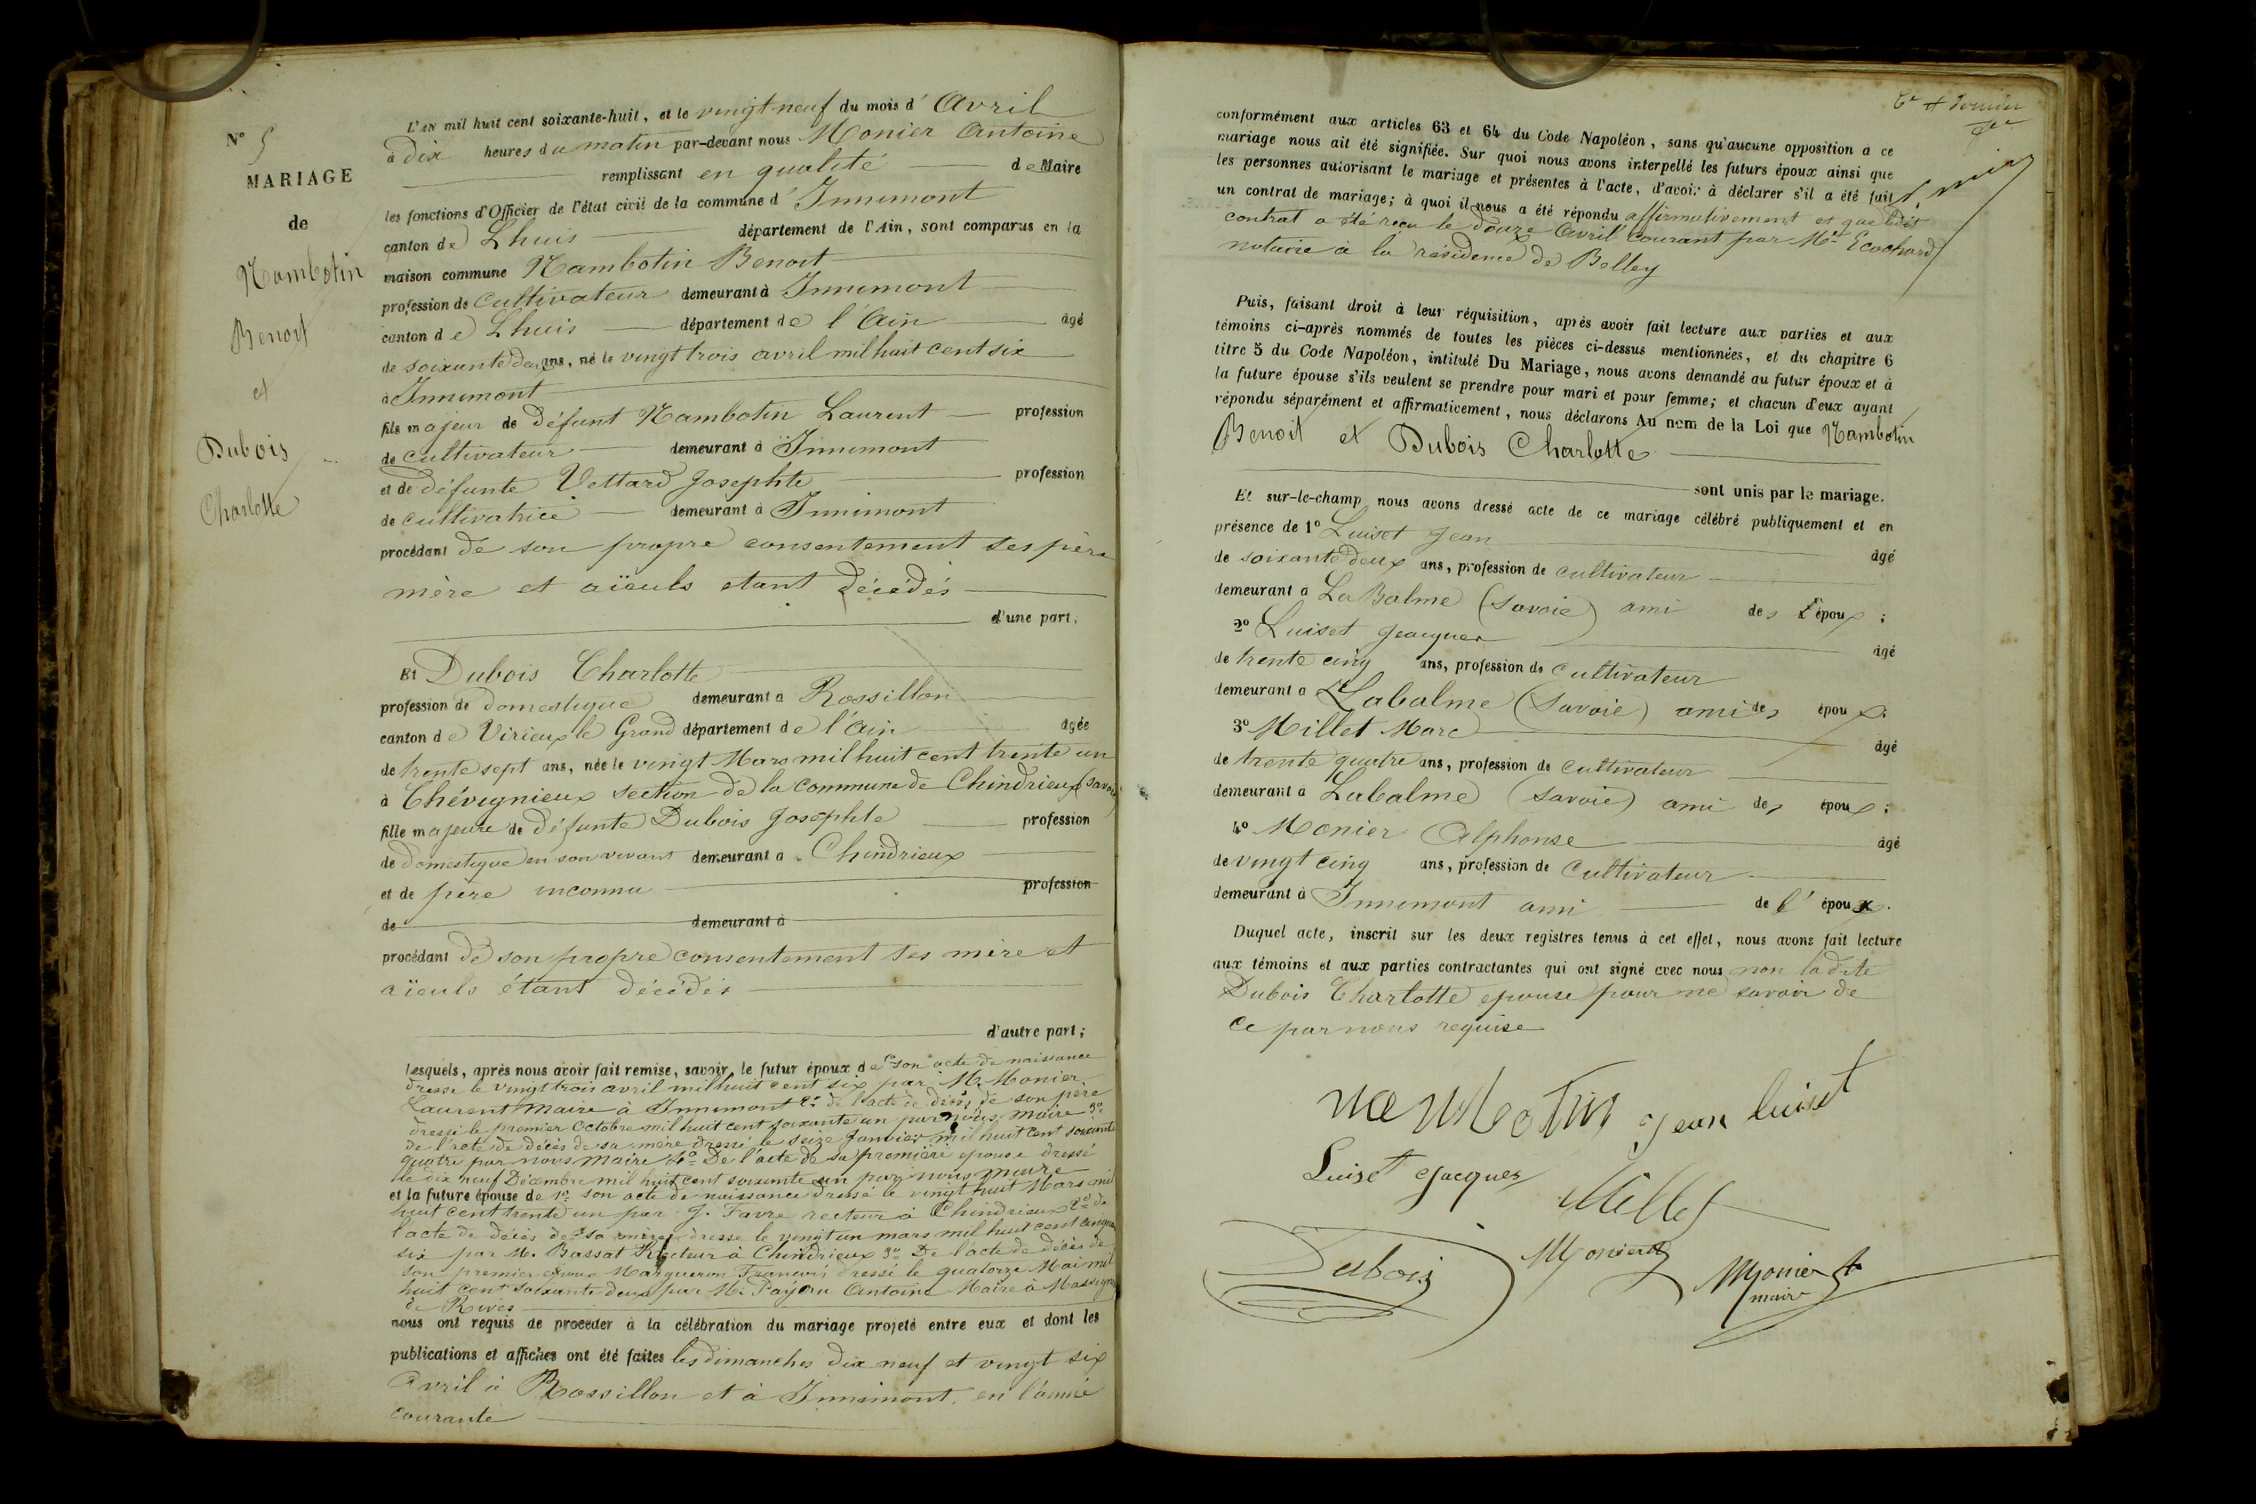 N° 5
MARIAGE
de
Nambotin
Benoit
et
Dubois
Charlotte
L'AN mil huit cent soixante-huit, et le vingt neuf du mois d' Avril
à dix heures du matin par-devant nous Monier Antoine
remplissant en qualité de Maire
les fonctions d'Officier de l'état civil de la commune d' Innimont
canton de Lhuis département de l'Ain, sont comparus en la
maison commune Nambotin Benoit
profession de cultivateur demeurant à Innimont
canton de Lhuis département de l'Ain âgé
de soixante deux ans, né le vingt trois avril mil huit cent six
à Innimont
fils majeur de défunt Nambotin Laurent profession
de cultivateur demeurant à Innimont
et de défunte Vettard Josephte profession
de cultivatrice demeurant à Innimont
procédant de son propre consentement ses père
mère et aïeuls etant décédés
d'une part;
Et Dubois Charlotte
profession de domestique demeurant à Rossillon
canton de Virieux le Grand département de l'Ain âgée
de trente sept ans, née le vingt Mars mil huit cent trente un
à Chévignieux section de la commune de Chindrieux (Savoie
fille majeure de défunte Dubois Josephte profession
de domestique en son vivant demeurant à Chindrieux
et de père inconnu profession
de demeurant à
procédant de son propre consentement ses mère et
aïeuls étant décédés
d'autre part;
lesquels, après nous avoir fait remise, savoir, le futur époux de 1° son acte de naissance
dressé le vingt trois avril mil huit cent six par M. Monier
Laurent maire à Innimont 2° de l'acte de décès de son père
dressé le premier Octobre mil huit cent soixante un par nous maire 3°
de l'acte de décès de sa mère dressé le seize Janvier mil huit cent soixante
quatre par nous maire 4° De l'acte de sa première epouse dressé
le dix neuf Décembre mil huit cent soixante un par nous maire
et la future épouse de 1° son acte de naissance dressé le vingt huit Mars mil
huit cent trente un par J. Favre recteur à Chindrieux 2° de
l'acte de décès de sa mère dressé le vingt un mars mil huit cent cinqua
six par M. Bassat Recteur à Chindrieux 3° De l'acte de décès de
son premier epoux Margueron François dressé le quatorze Mai mil
huit cent soixante deux par M. Antoine Maire à Massignieu
de Rives
nous ont requis de procéder à la célébration du mariage projeté entre eux et dont les
publications et affiches ont été faites les dimanches dix neuf et vingt six
Avril à Rossillon et à Innimont en l'année
courante
6e et dernier
conformément aux articles 63 et 64 du Code Napoléon, sans qu'aucune opposition à ce
mariage nous ait été signifiée. Sur quoi nous avons interpellé les futurs époux ainsi que
les personnes autorisant le mariage et présentes à l'acte, d'avoir à déclarer s'il a été fait
un contrat de mariage; à quoi il nous a été répondu affirmativement et que ledit
contrat a été reçu le douze Avril courant par Me Ecochard
notaire à la résidence de Belley
Puis, faisant droit à leur réquisition, après avoir fait lecture aux parties et aux
témoins ci-après nommés de toutes les pièces ci-dessus mentionnées, et du chapitre 6
titre 5 du Code Napoléon, intitulé Du Mariage, nous avons demandé au futur époux et à
la future épouse s'ils veulent se prendre pour mari et pour femme; et chacun d'eux ayant
répondu séparément et affirmativement, nous déclarons Au nom de la Loi que Nambotin
Benoit et Dubois Charlotte
sont unis par le mariage.
Et sur-le-champ nous avons dressé acte de ce mariage célébré publiquement et en
présence de 1° Luiset Jean âgé
de soixante deux ans, profession de cultivateur
demeurant à La Balme (Savoie) ami des époux;
2° Luiset Jacques âgé
de trente cinq ans, profession de cultivateur
demeurant à Labalme (Savoie) ami des époux
3° Millet Marc âgé
de trente quatre ans, profession de cultivateur
demeurant à Labalme (Savoie) ami des époux;
4° Monier Alphonse âgé
de vingt cinq ans, profession de cultivateur
demeurant à Innimont ami de l'époux.
Duquel acte, inscrit sur les deux registres tenus à cet effet, nous avons fait lecture
aux témoins et aux parties contractantes qui ont signé avec nous non ladite
Dubois Charlotte epouse pour ne savoir de
ce par nous requise
nambotin Jean luiset
Luiset Jacques Millet
Dubois Monier A Monier A
maire